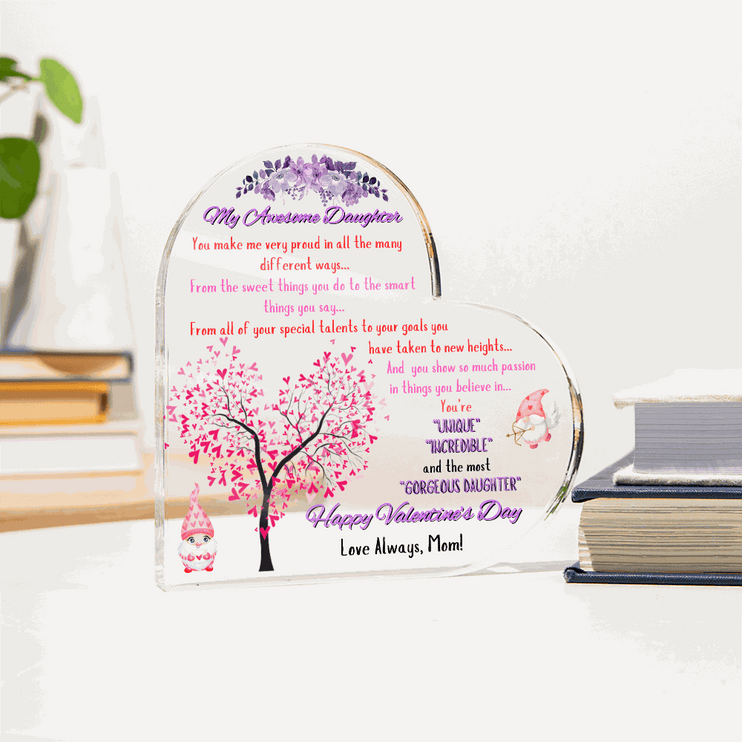 My Awesome Daughter
You make me very proud in all the many
different ways...
From the sweet things you do to the smart
things you say...
From all of your special talents to your goals you
have taken to new heights...
And you show so much passion
in things you believe in...
You're
"UNIQUE"
"INCREDIBLE"
and the most
"GORGEOUS DAUGHTER"
Happy Valentine's Day
Love Always, Mom!